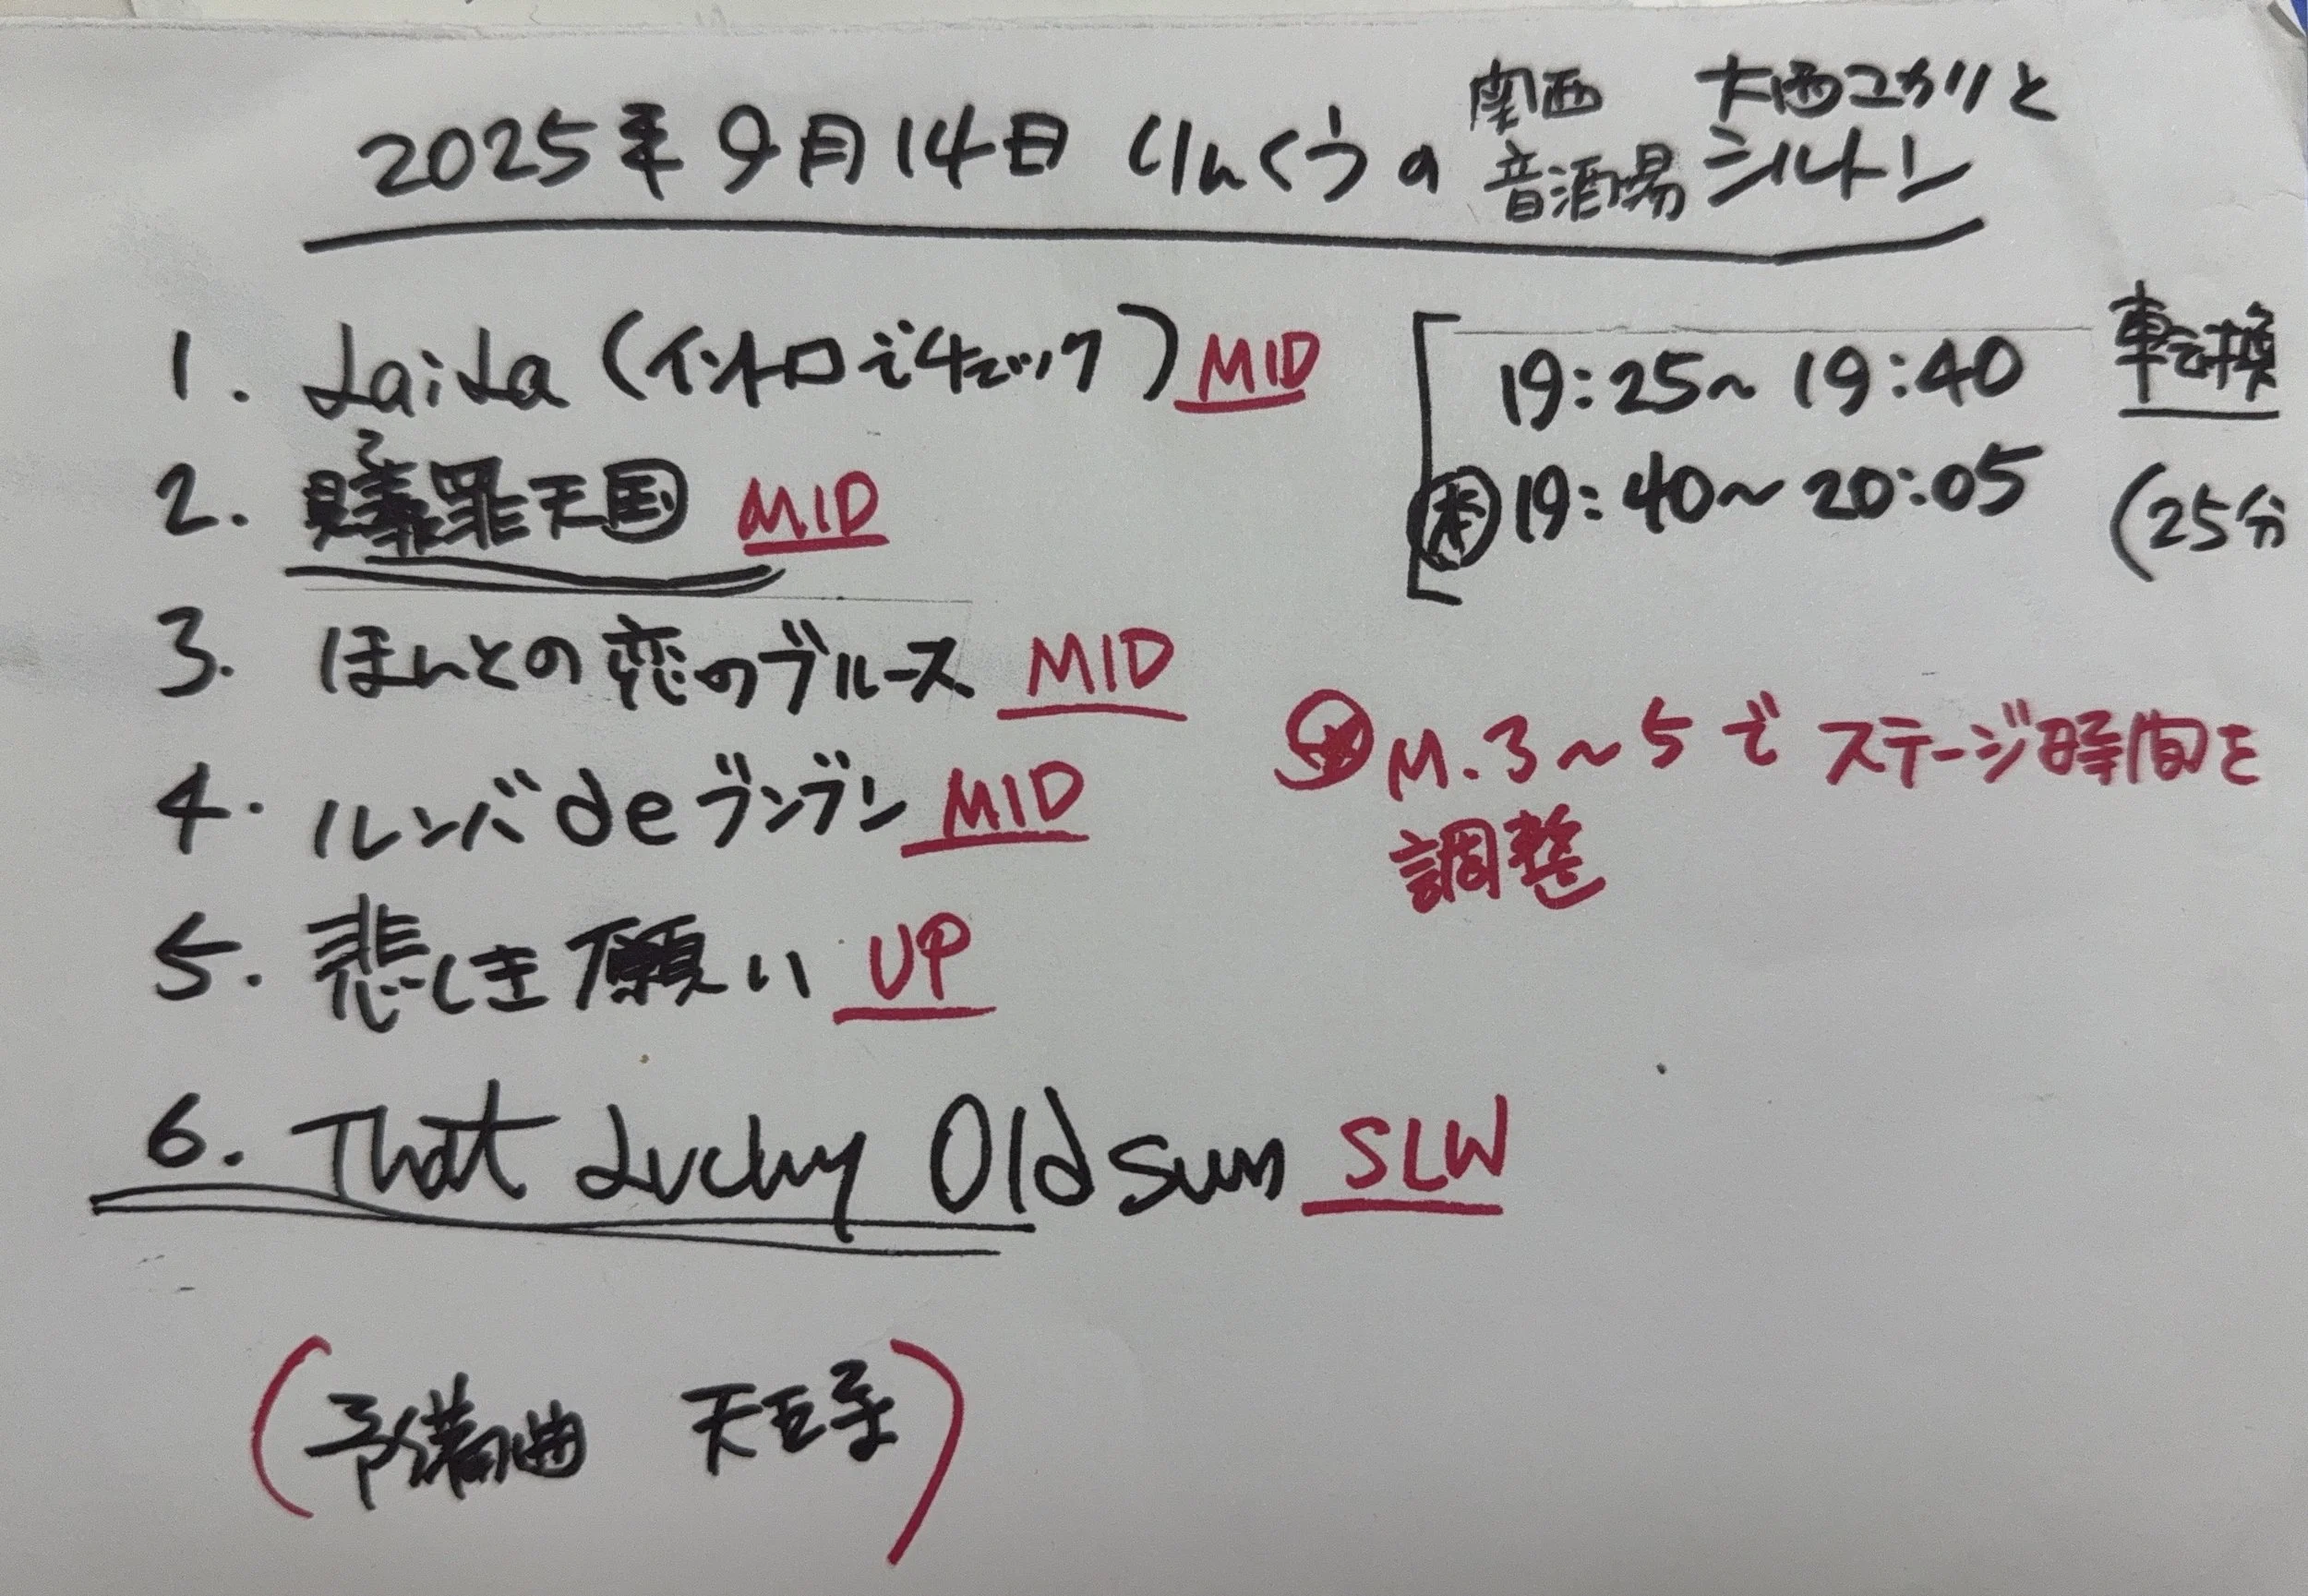 2025年9月14日 りんくうの 関西音酒場 大西ユカリとシルトン
1. LaiLa (イントロでチェック) MID
19:25~19:40 転換
2. 贖罪天国 MID
㊍19:40~20:05 (25分
3. ほんとの恋のブルース MID
4. ルンバdeブンブン MID
M.3~5でステージ時間を
調整
5. 悲しき願い UP
6. That Lucky Old sun SLW
(予備曲 天王寺)